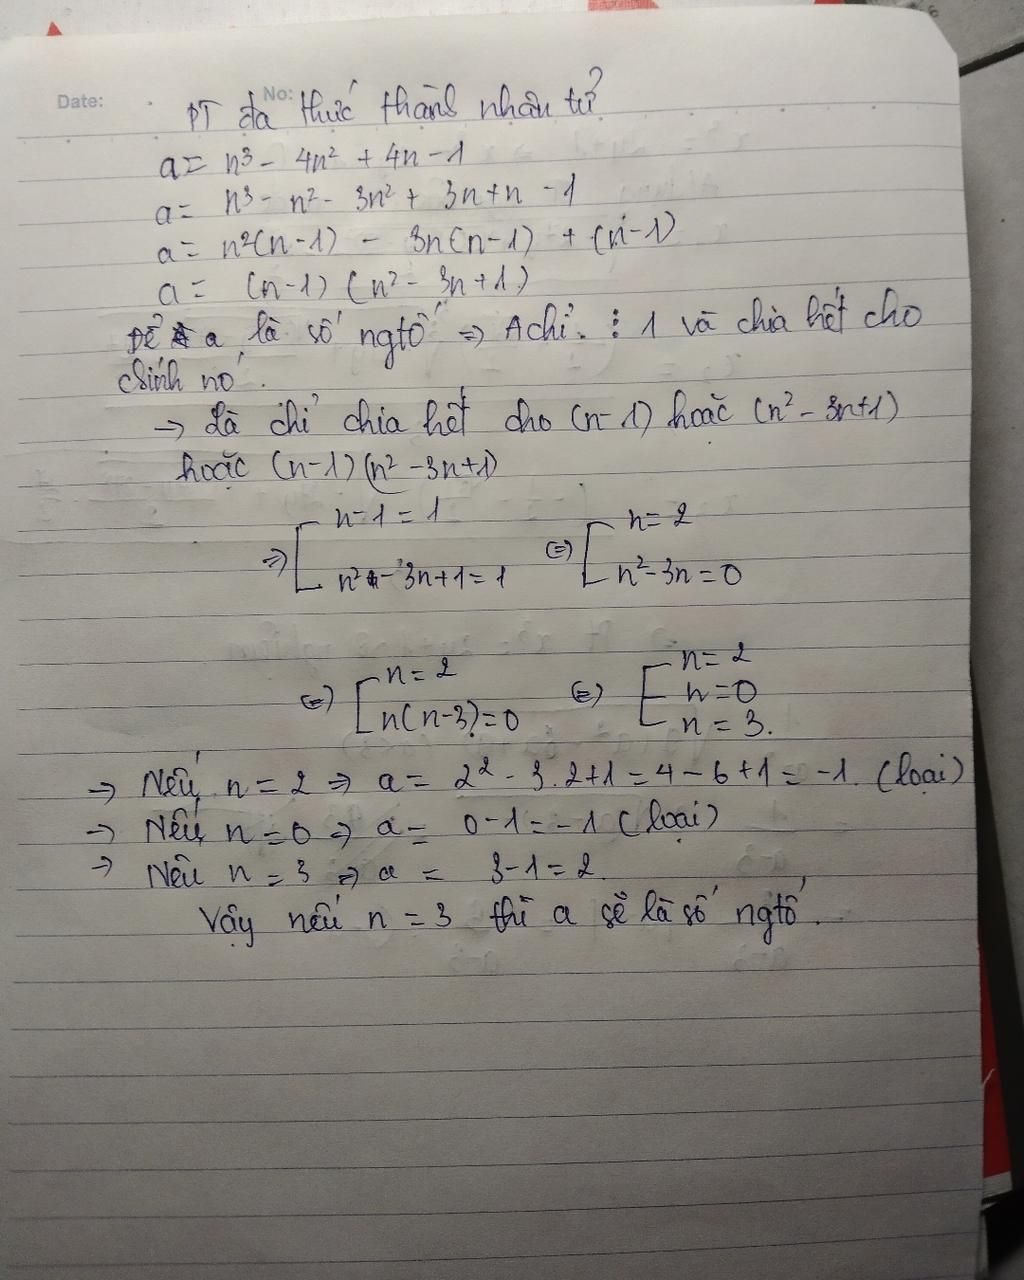 Date:
No:
PT đa thức thành nhân tử
a = n³ - 4n² + 4n - 1
a = n³ - n² - 3n² + 3n + n - 1
a = n²(n-1) - 3n(n-1) + (n-1)
a = (n-1) (n² - 3n + 1)
Để a là số ngtố => A chỉ ⋮ 1 và chia hết cho
chính nó.
→ Là chỉ chia hết cho (n-1) hoặc (n² - 3n+1)
hoặc (n-1)(n² - 3n+1)
=> [ n-1 = 1 (=) [ n = 2
n² - 3n+1 = 1 n² - 3n = 0
(=) [ n = 2 (=) [ n = 2
n(n-3) = 0 n = 0
n = 3.
→ Nếu n = 2 => a = 2² - 3.2+1 = 4 - 6 + 1 = -1. (loại)
→ Nếu n = 0 => a = 0 - 1 = -1 (loại)
→ Nếu n = 3 => a = 3 - 1 = 2.
Vậy nếu n = 3 thì a sẽ là số ngtố.